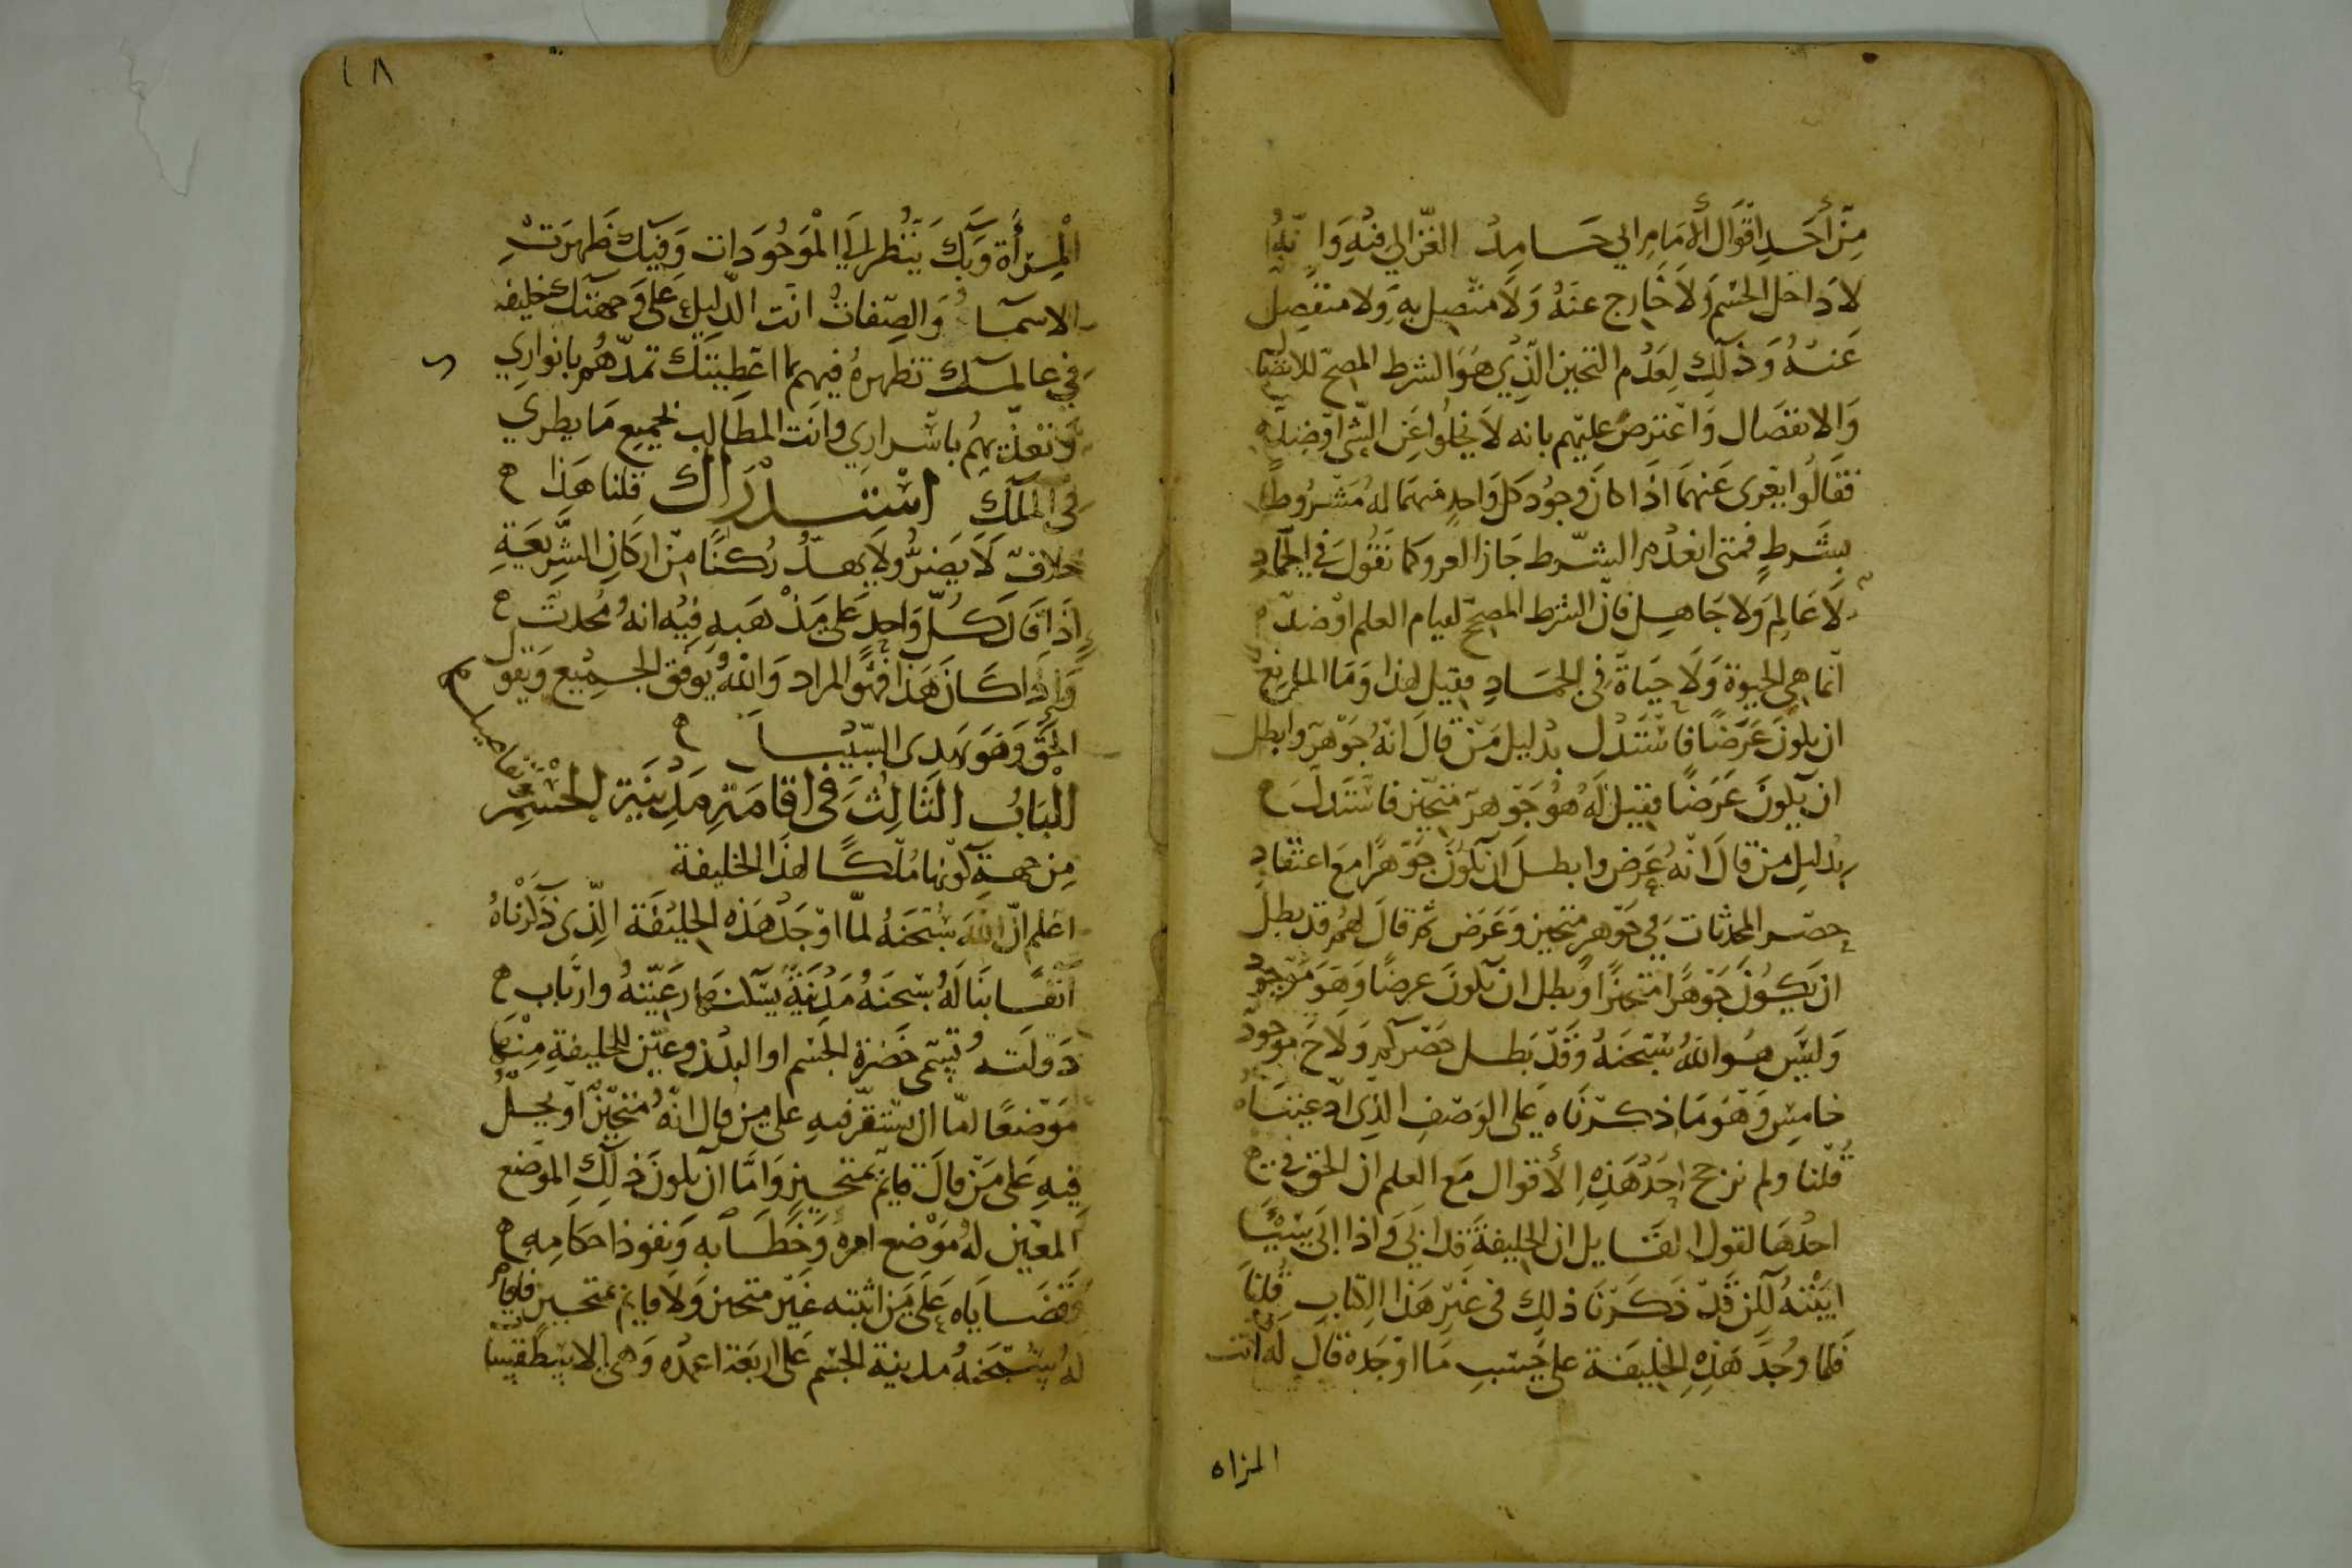 من أحد اقوال الامام ابي حامد الغزالي فيه وانه
لا داخل الجسم ولا خارج عنه ولا متصل به ولا منفصل
عنه وذلك لعدم التحيز الذي هو الشرط المصحح للاتصال
والانفصال واعترض عليهم بانه لا يخلوا عن الشي او ضده
فقالوا يعرى عنهما اذا كان وجود كل واحد منهما له مشروطا
بشرط فمتى انعدم الشرط جاز العرو كما نقول في الجماد
لا عالم ولا جاهل فان الشرط المصحح لقيام العلم او ضده
انما هي الحيوة ولا حياة في الجماد فقيل لهذا وما المانع
ان يكون عرضا فاستدل بدليل من قال انه جوهر وابطل
ان يكون عرضا فقيل له هو جوهر متحيز فاستدل
بدليل من قال انه عرض وابطل ان يكون جوهرا مع اعتقاد
حصر المحدثات في جوهر متحيز وعرض ثم قال لهم قد بطل
ان يكون جوهرا متحيزا وبطل ان يكون عرضا وهو موجود
وليس هو الله سبحنه وقد بطل حصركم ولاح موجود
خامس وهو ما ذكرناه على الوصف الذي ادعيناه
قلنا ولم نرجح احد هذه الأقوال مع العلم ان الحق في
احدها لقول القايل ان الخليفة قد ابى واذا ابى شيئا
ابيته لكن قد ذكرنا ذلك في غير هذا الكتاب قلنا
فلما وجد هذه الخليفة على حسب ما اوجده قال له انت
المراه
١٨
المرأة وبك ينظر الى الموجودات وفيك ظهرت
الاسماء والصفات انت الدليل علي وجهتك خليفه
في عالمك تظهره فيهم بما اعطيتك تمدهم بانواري
وتغذيهم باسراري وانت المطالب لجميع ما يطري
في الملك استدراك قلنا هذا
خلاف لا يضر ولا يهد ركنا من اركان الشريعة
اذا قال كل واحد على مذهبه فيه انه محدث
واذا كان هذا فهو المراد والله يوفق الجميع ويقول
الحق وهو يهدى السبيل
الباب الثالث في اقامة مدينة الجسم
من جهة كونها ملكا لهذا الخليفة
اعلم ان الله سبحنه لما اوجد هذه الخليفة الذى ذكرناه
انفا بنا له سبحنه مدينة يسكنها رعيته وارباب
دولته تسمى حضرة الجسم او البدن وعين للخليفة منها
موضعا اما ان يستقر فيه على من قال انه متحيز او يحل
فيه على من قال قايم بمتحيز واما ان يكون ذلك الموضع
المعين له موضع امره وخطابه ونفوذ احكامه
وقضاياه على من اثبته غير متحيز ولا قايم بمتحيز فاقام
له سبحنه مدينة الجسم على اربعة اعمده وهى الاسطقسات